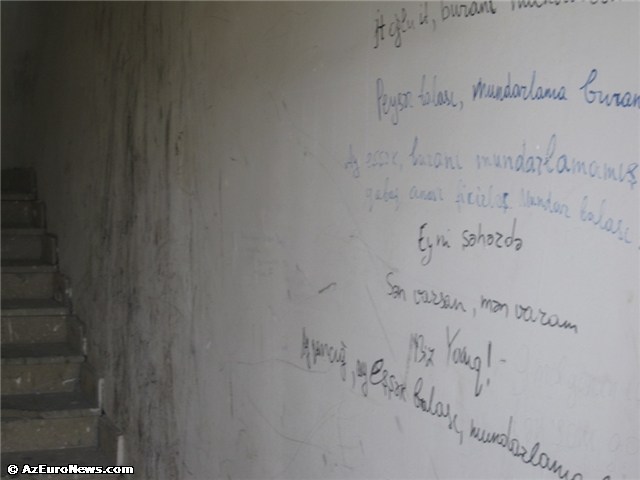 İt oğlu it, buranı
Peysər balası, mundarlama buranı
Ay eşşək, buranı mundarlamamış
qabaq anar fikirləş. Mundar balası.
Eyni şəhərdə
Sən varsan, mən varam
Biz Yoxuq!
Ay qancığ, ay eşşək balası, mundarlama
© AzEuroNews.com